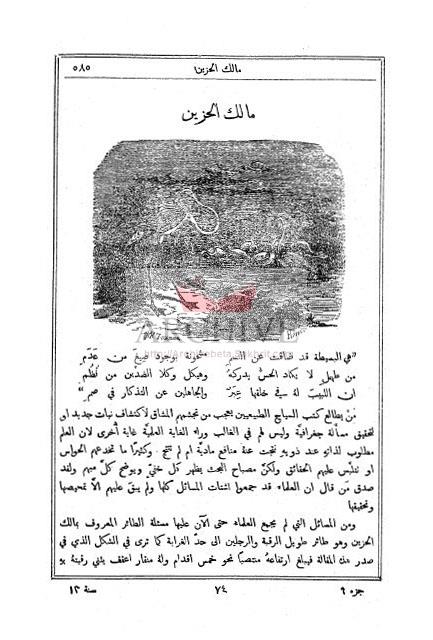 مالك الحزين ٥٨٥
مالك الحزين
ARCHIVE
هي البسيطة قد ضاقت عن النسم محوية بوجود صيغ من عَدَمِ
من طهل لا يكاد الحسُّ يدركهُ وهيكل وكلا الضدَّين من نُظُم
ان اللبيبَ لهُ في خلقها عِبَرٌ والجاهلين عن التذكار في صمم
مَن يطالع كتب السياح الطبيعيين يعجب من تجشمهم المشاق لاكتشاف نبات جديد او
لتحقيق مسألة جغرافيَّة وليس لهم في الغالب وراء الغاية العلميَّة غاية أخرى لان العلم
مطلوب لذاتهِ عند ذويهِ نتجت عنهُ منافع ماديَّة ام لم تنتج. وكثيرًا ما تخدعهم الحواس
او تلتبس عليهم الحقائق ولكنَّ مصباح البحث يظهر كل خفيّ ويوضح كلَّ مبهم ولقد
صدق مَن قال ان العلماء قد جمعوا اشتات المسائل كلها ولم يبقَ عليهم الاَّ تمحيصها
وتحقيقها
ومن المسائل التي لم يجمع العلماء حتى الآن عليها مسئلة الطائر المعروف بمالك
الحزين وهو طائر طويل الرقبة والرجلين الى حدّ الغرابة كما ترى في الشكل الذي في
صدر هذه المقالة فيبلغ ارتفاعهُ منتصبًا نحو خمس اقدام ولهُ منقار اعقف يثني رقبتهُ بهِ
جزء ٩ ٧٤ سنة ١٢